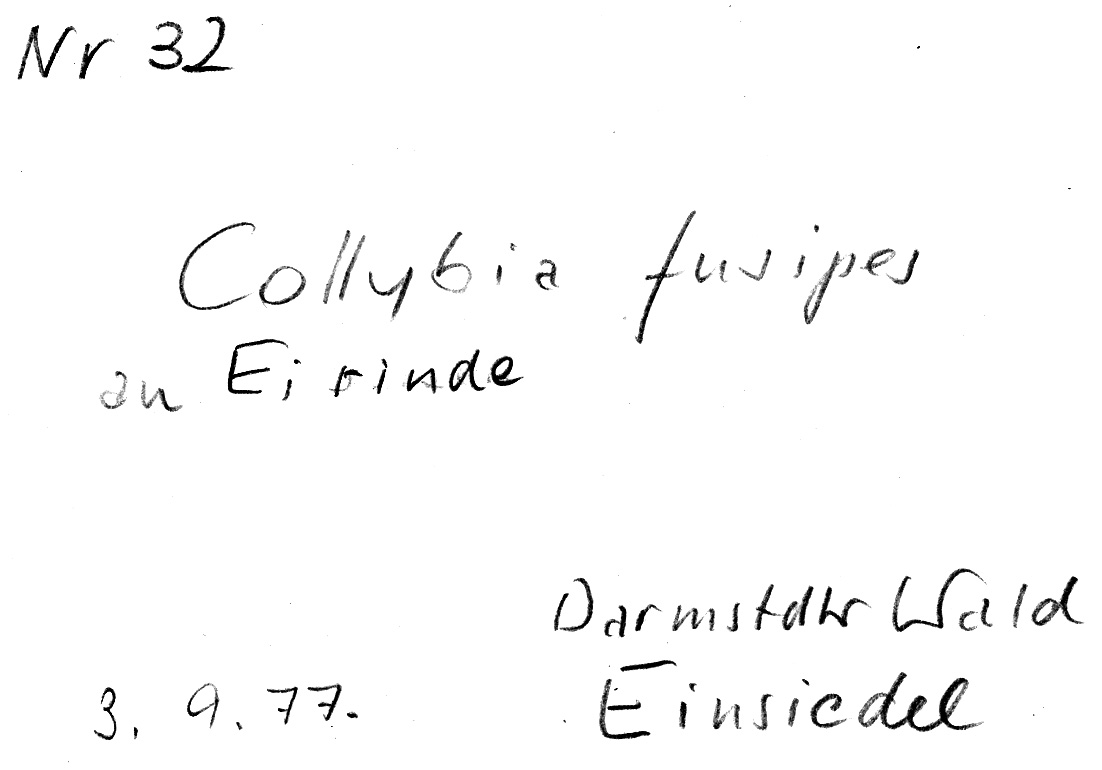 Nr 32
Collybia fusipes
an Eirinde
Darmstdtr Wald
3. 9. 77. Einsiedel